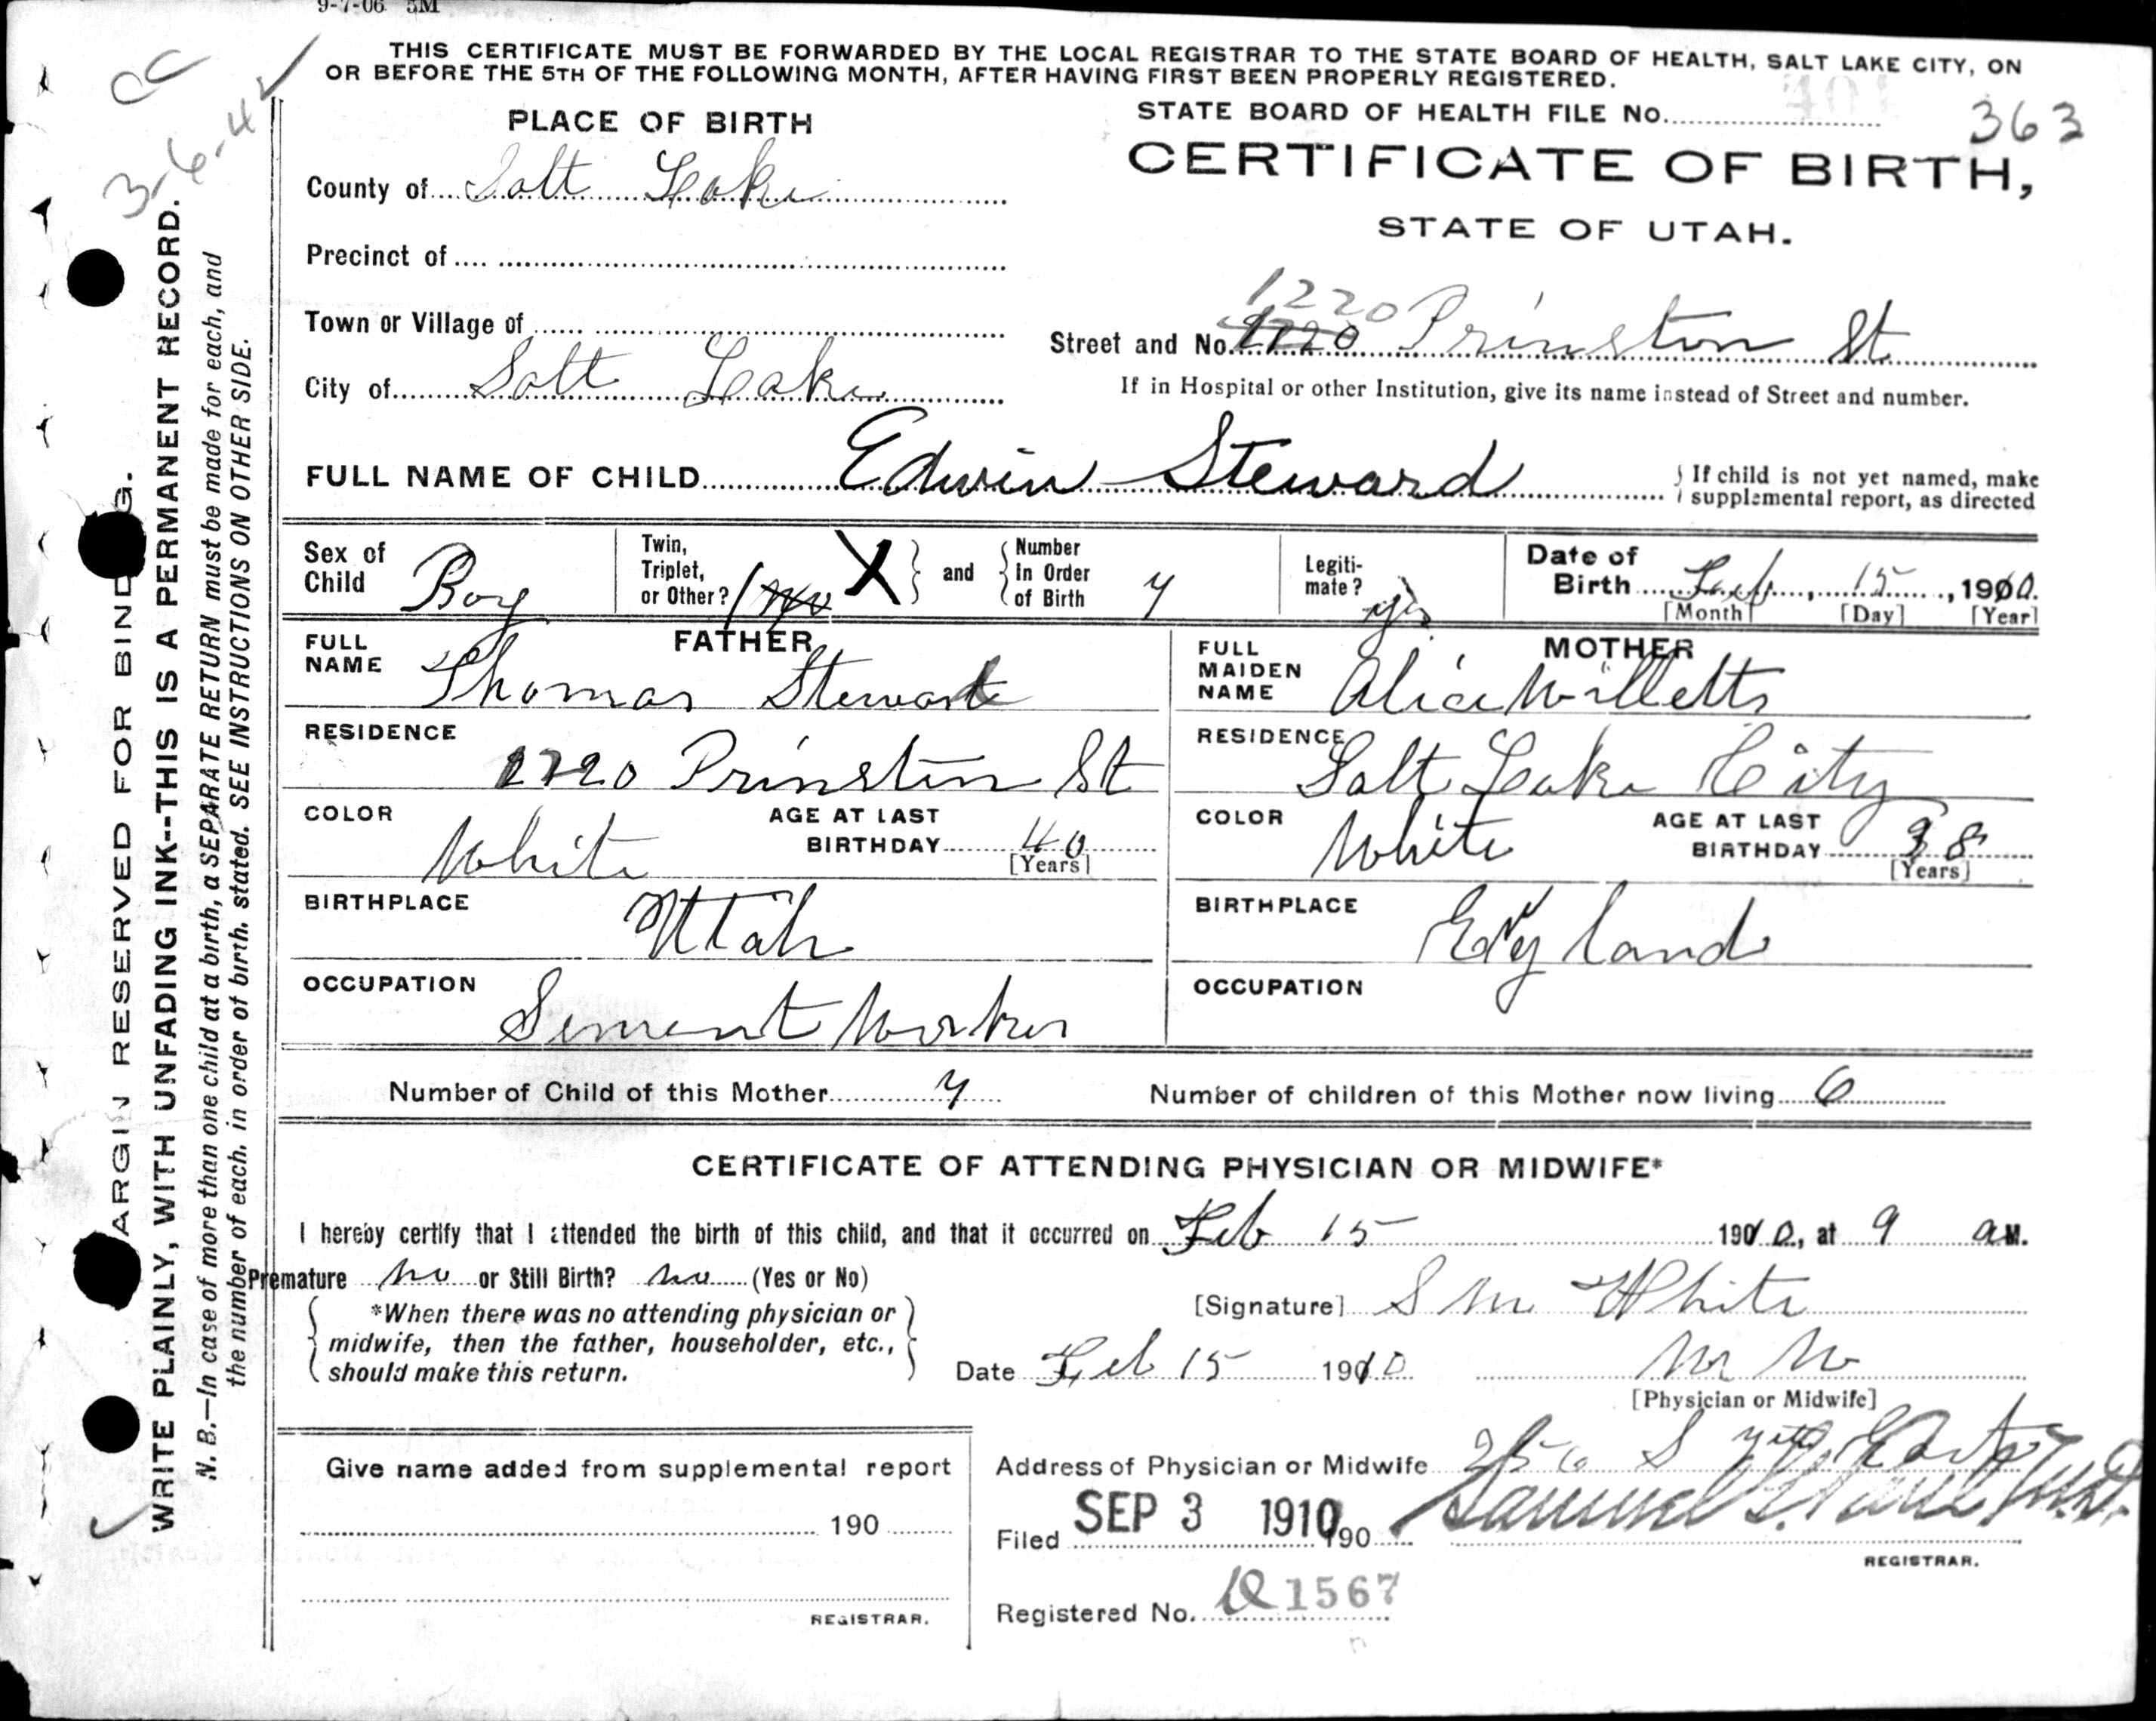 9-7-06 5M
THIS CERTIFICATE MUST BE FORWARDED BY THE LOCAL REGISTRAR TO THE STATE BOARD OF HEALTH, SALT LAKE CITY, ON
OR BEFORE THE 5TH OF THE FOLLOWING MONTH, AFTER HAVING FIRST BEEN PROPERLY REGISTERED.
3-6-4
STATE BOARD OF HEALTH FILE No. 363
PLACE OF BIRTH
CERTIFICATE OF BIRTH,
STATE OF UTAH.
County of Salt Lake
Precinct of
Town or Village of
1220
Street and No. Prinston St
City of Salt Lake
If in Hospital or other Institution, give its name instead of Street and number.
FULL NAME OF CHILD Edwin Steward
If child is not yet named, make
supplemental report, as directed
Sex of Child Boy
Twin, Triplet, or Other? No X and Number in Order of Birth 7
Legitimate? yes
Date of Birth Feb, 15, 1910.
[Month] [Day] [Year]
FATHER
FULL NAME Thomas Steward
MOTHER
FULL MAIDEN NAME Alice Willetts
RESIDENCE 1220 Prinston St
RESIDENCE Salt Lake City
COLOR White AGE AT LAST BIRTHDAY 40 [Years]
COLOR White AGE AT LAST BIRTHDAY 38 [Years]
BIRTHPLACE Utah
BIRTHPLACE England
OCCUPATION Sement Worker
OCCUPATION
Number of Child of this Mother 7 Number of children of this Mother now living 6
CERTIFICATE OF ATTENDING PHYSICIAN OR MIDWIFE*
I hereby certify that I attended the birth of this child, and that it occurred on Feb 15 1910, at 9 a M.
Premature no or Still Birth? no (Yes or No)
*When there was no attending physician or
midwife, then the father, householder, etc.,
should make this return.
[Signature] S M White
Date Feb 15 1910
[Physician or Midwife]
Give name added from supplemental report
190
REGISTRAR.
Address of Physician or Midwife 256 S 7th East
Filed SEP 3 1910 190
Samuel G. Paul M.D.
REGISTRAR.
Registered No. 1567
MARGIN RESERVED FOR BINDING.
WRITE PLAINLY, WITH UNFADING INK--THIS IS A PERMANENT RECORD.
N. B.—In case of more than one child at a birth, a SEPARATE RETURN must be made for each, and
the number of each, in order of birth, stated. SEE INSTRUCTIONS ON OTHER SIDE.